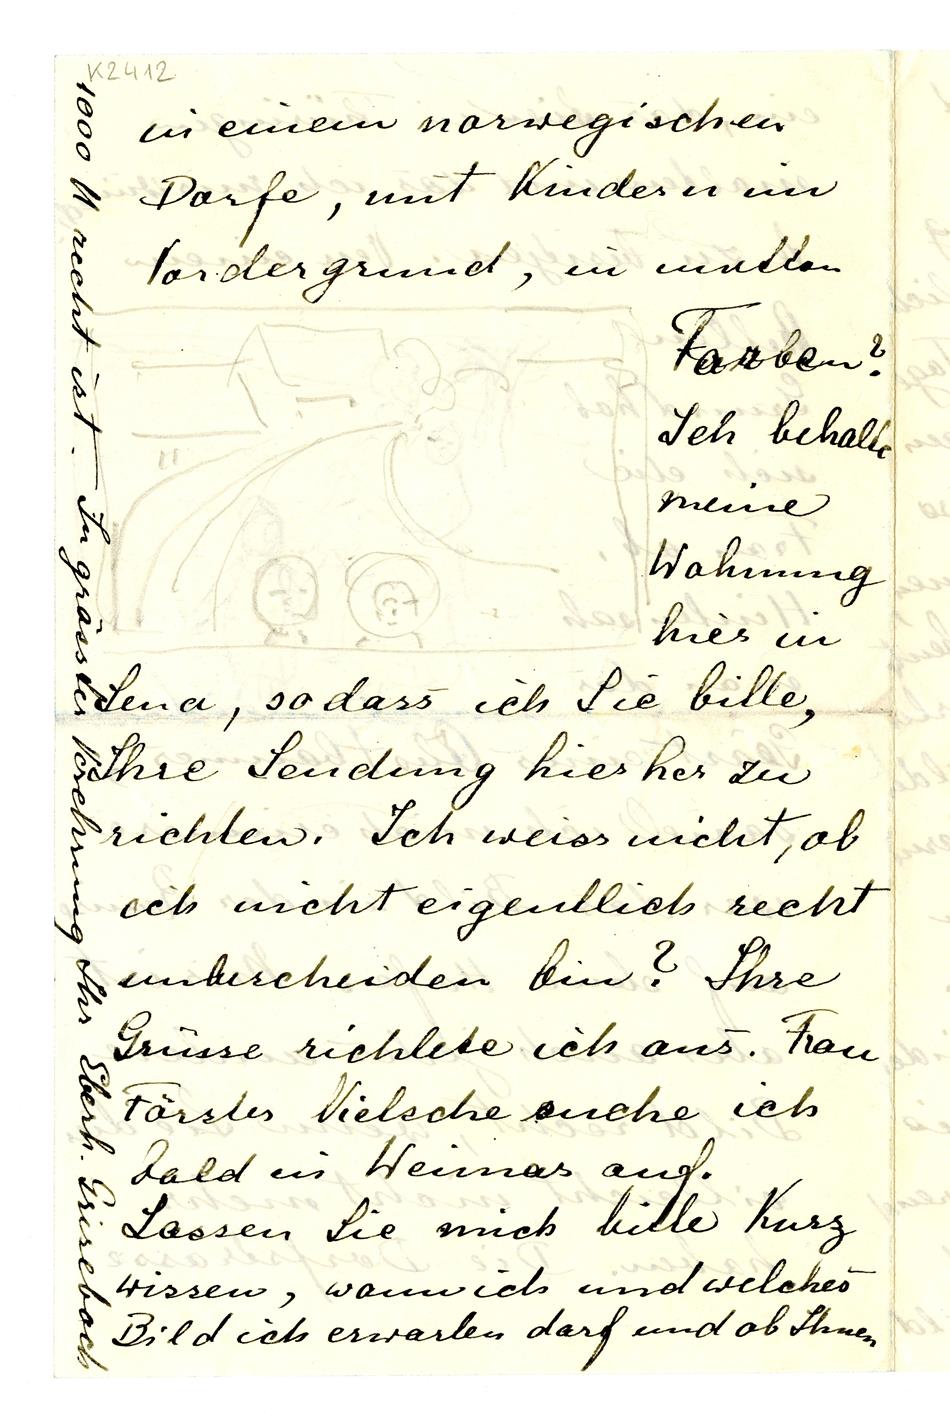 K2412
in einem norwegischen
Dorfe, mit Kindern im
Vordergrund, in matten
Farben?
Ich behalte
meine
Wohnung
hier in
Jena, sodass ich Sie bitte,
Ihre Sendung hierher zu
richten. Ich weiss nicht, ob
ich nicht eigentlich recht
unbescheiden bin? Ihre
Grüsse richtete ich aus. Frau
Förster Nietsche suche ich
bald in Weimar auf.
Lassen Sie mich bitte kurz
wissen, wann ich und welches
Bild ich erwarten darf und ob Ihnen
1000 M recht ist. – In grösster Verehrung Ihr Eberh. Grisebach